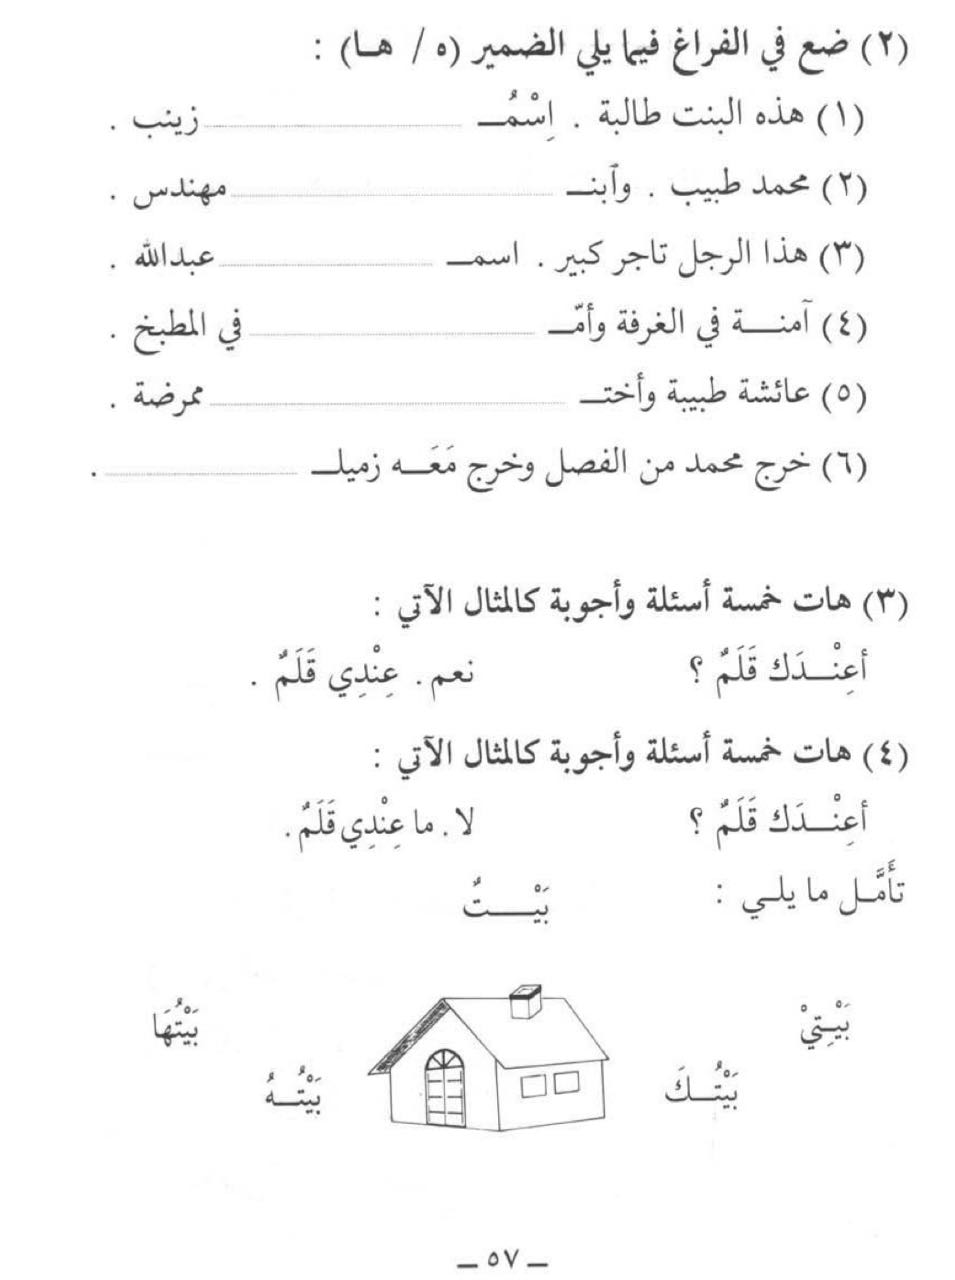 (٢) ضع في الفراغ فيما يلي الضمير (ه / هـا) :
(١) هذه البنت طالبة . اِسْمُـ ........................ زينب .
(٢) محمد طبيب . وٱبنـ ........................ مهندس .
(٣) هذا الرجل تاجر كبير . اسمـ ........................ عبدالله .
(٤) آمنـة في الغرفة وأمّـ ........................ في المطبخ .
(٥) عائشة طبيبة وأختـ ........................ ممرضة .
(٦) خرج محمد من الفصل وخرج مَعَـه زميلـ ........................ .
(٣) هات خمسة أسئلة وأجوبة كالمثال الآتي :
أعِنْـدَك قَلَمٌ ؟ نعم . عِنْدِي قَلَمٌ .
(٤) هات خمسة أسئلة وأجوبة كالمثال الآتي :
أعِنْـدَك قَلَمٌ ؟ لا . ما عِنْدِي قَلَمٌ .
تأَمَّـل ما يلـي : بَيْـتٌ
بَيْـتِيْ بَيْتُهَا
بَيْتُـكَ بَيْتُـهُ
ـ ٥٧ ـ